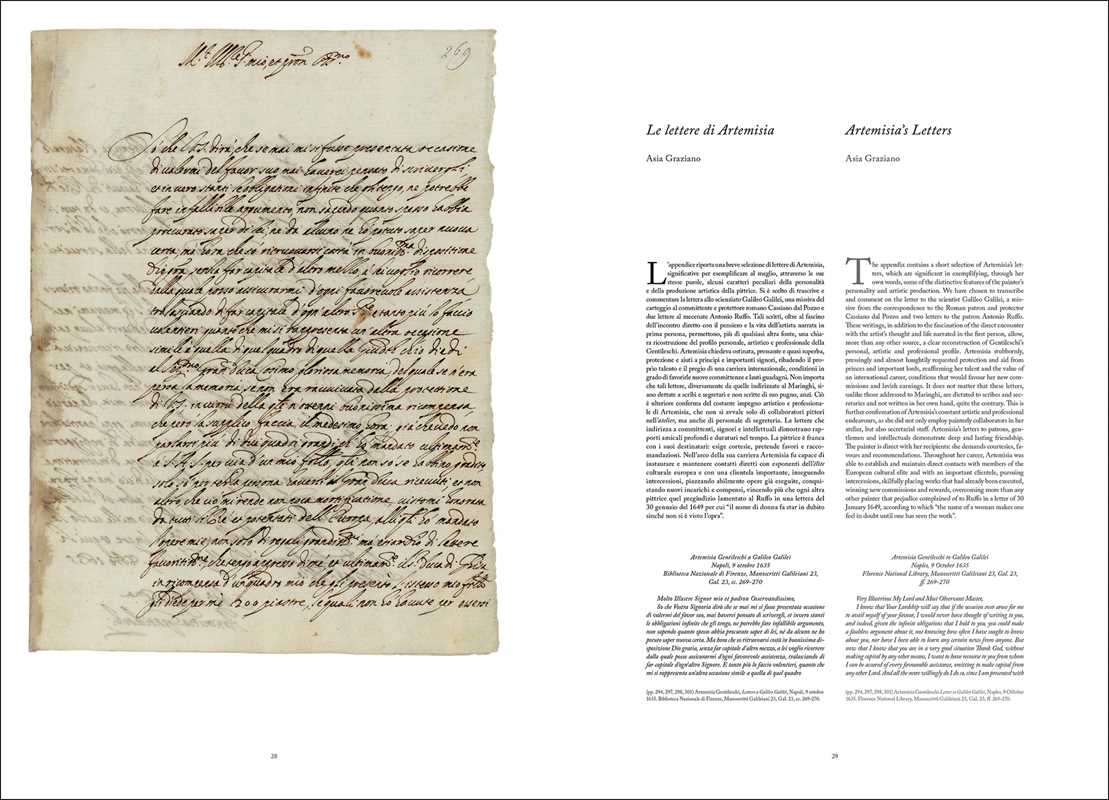 269
So che V.S. dirà, che se mai mi si fusse presentata occasione
di valermi del favor suo mai haverei pensato di scrivergli
et in vero stanti le obligationi infinite che gli tengo, ne potrebbe
fare infallibile argumento, non sapendo quanto spesso habbia
procurato saper di lei, ne da alcuno ne ho potuto saper nuova
certa, ma hora che so ritrovarsi costà in dispositione
senza far capitale d'altro mezzo, a lei voglio ricorrere
dalla quale posso assicurarmi d'ogni favorevole assistenza
tralasciando di far capitale d'ogni altro tanto più lo faccio
volentieri quanto che mi si rappresenta un'altra occasione
simile a quella di quel quadro di quella Giudit ch'io diedi
Duca Cosimo gloriosa memoria, del quale se n'era
persa la memoria se non era ravvivata dalla protettione
di V.S. in virtù della buonissima ricompensa
Le lettere di Artemisia
Asia Graziano
L'appendice riporta una breve selezione di lettere di Artemisia,
significative per esemplificare al meglio, attraverso le sue
stesse parole, alcuni caratteri peculiari della personalità
e della produzione artistica della pittrice. Si è scelto di trascrivere e
commentare la lettera allo scienziato Galileo Galilei, una missiva del
carteggio al committente e protettore romano Cassiano dal Pozzo e
due lettere al mecenate Antonio Ruffo. Tali scritti, oltre al fascino
dell'incontro diretto con il pensiero e la vita dell'artista narrata in
prima persona, permettono, più di qualsiasi altra fonte, una chia-
ra ricostruzione del profilo personale, artistico e professionale della
Gentileschi. Artemisia chiedeva ostinata, pressante e quasi superba,
protezione e aiuti a principi e importanti signori, ribadendo il pro-
prio talento e il pregio di una carriera internazionale, condizioni in
grado di favorirle nuove committenze e lauti guadagni. Non importa
che tali lettere, diversamente da quelle indirizzate al Maringhi, si-
ano dettate a scribi e segretari e non scritte di suo pugno, anzi. Ciò
è ulteriore conferma del costante impegno artistico e professiona-
le di Artemisia, che non si avvale solo di collaboratori pittori
nell'atelier, ma anche di personale di segreterio. Le lettere che
indirizza a committenti, signori e intellettuali dimostrano rap-
porti amicali profondi e duraturi nel tempo. La pittrice è franca
con i suoi destinatari: esige cortesie, pretende favori e racco-
mandazioni. Nell'arco della sua carriera Artemisia fu capace di
instaurare e mantenere contatti diretti con esponenti dell'élite
culturale europea e con una clientela importante, inseguendo
intercessioni, piazzando abilmente opere già eseguite, conqui-
stando nuovi incarichi e compensi, vincendo più che ogni altra
pittrice quel pregiudizio lamentato al Ruffo in una lettera del
30 gennaio del 1649 per cui "il nome di donna fa star in dubito
sinché non si è visto l'opra".
Artemisia Gentileschi a Galileo Galilei
Napoli, 9 ottobre 1635
Biblioteca Nazionale di Firenze, Manoscritti Galileiani 23,
Gal. 23, cc. 269-270
Molto Illustre Signor mio et padron Osservandissimo,
So che Vostra Signoria dirà che se mai mi si fusse presentata occasione
di valermi del favor suo, mai haverei pensato di scrivergli, et invero stanti
le obbligationi infinite che gli tengo, ne potrebbe fare infallibile argumento,
non sapendo quanto spesso abbia procurato saper di lei, né da alcuno ne ho
potuto saper nuova certa. Ma hora che so ritrovarsi costà in buonissima di-
sposizione Dio gratia, senza far capitale d'altro mezzo, a lei voglio ricorrere
dalla quale posso assicurarmi d'ogni favorevole assistenza, tralasciando di
far capitale d'ogn'altro Signore. E tanto più lo faccio volentieri, quanto che
mi si rappresenta un'altra occasione simile a quella di quel quadro
(pp. 294, 297, 298, 301) Artemisia Gentileschi, Lettera a Galileo Galilei, Napoli, 9 ottobre
1635. Biblioteca Nazionale di Firenze, Manoscritti Galileiani 23, Gal. 23, cc. 269-270.
Artemisia's Letters
Asia Graziano
The appendix contains a short selection of Artemisia's let-
ters, which are significant in exemplifying, through her
own words, some of the distinctive features of the painter's
personality and artistic production. We have chosen to transcribe
and comment on the letter to the scientist Galileo Galilei, a mis-
sive from the correspondence to the Roman patron and protector
Cassiano dal Pozzo and two letters to the patron Antonio Ruffo.
These writings, in addition to the fascination of the direct encounter
with the artist's thought and life narrated in the first person, allow,
more than any other source, a clear reconstruction of Gentileschi's
personal, artistic and professional profile. Artemisia stubbornly,
pressingly and almost haughtily requested protection and aid from
princes and important lords, reaffirming her talent and the value of
an international career, conditions that would favour her new com-
missions and lavish earnings. It does not matter that these letters,
unlike those addressed to Maringhi, are dictated to scribes and sec-
retaries and not written in her own hand, quite the contrary. This is
further confirmation of Artemisia's constant artistic and professional
endeavours, as she did not only employ painterly collaborators in her
atelier, but also secretarial staff. Artemisia's letters to patrons, gen-
tlemen and intellectuals demonstrate deep and lasting friendship.
The painter is direct with her recipients: she demands courtesies, fa-
vours and recommendations. Throughout her career, Artemisia was
able to establish and maintain direct contacts with members of the
European cultural élite and with an important clientele, pursuing
intercessions, skilfully placing works that had already been executed,
winning new commissions and rewards, overcoming more than any
other painter that prejudice complained of to Ruffo in a letter of 30
January 1649, according to which "the name of a woman makes one
feel in doubt until one has seen the work".
Artemisia Gentileschi to Galileo Galilei
Naples, 9 October 1635
Florence National Library, Manuscritti Galileiani 23, Gal. 23,
ff. 269-270
Very Illustrious My Lord and Most Observant Master,
I know that Your Lordship will say that if the occasion ever arose for me
to avail myself of your favour, I would never have thought of writing to you,
and indeed, given the infinite obligations that I hold to you, you could make
a faultless argument about it, not knowing how often I have sought to know
about you, nor have I been able to learn any certain news from anyone. But
now that I know that you are in a very good situation Thank God, without
making capital by any other means, I want to have recourse to you from whom
I can be assured of every favourable assistance, omitting to make capital from
any other Lord. And all the more willingly do I do so, since I am presented with
(pp. 294, 297, 298, 301) Artemisia Gentileschi Letter to Galileo Galilei, Naples, 9 Ottobre
1635. Florence National Library, Manuscritti Galileiani 23, Gal. 23, ff. 269-270.
28
29